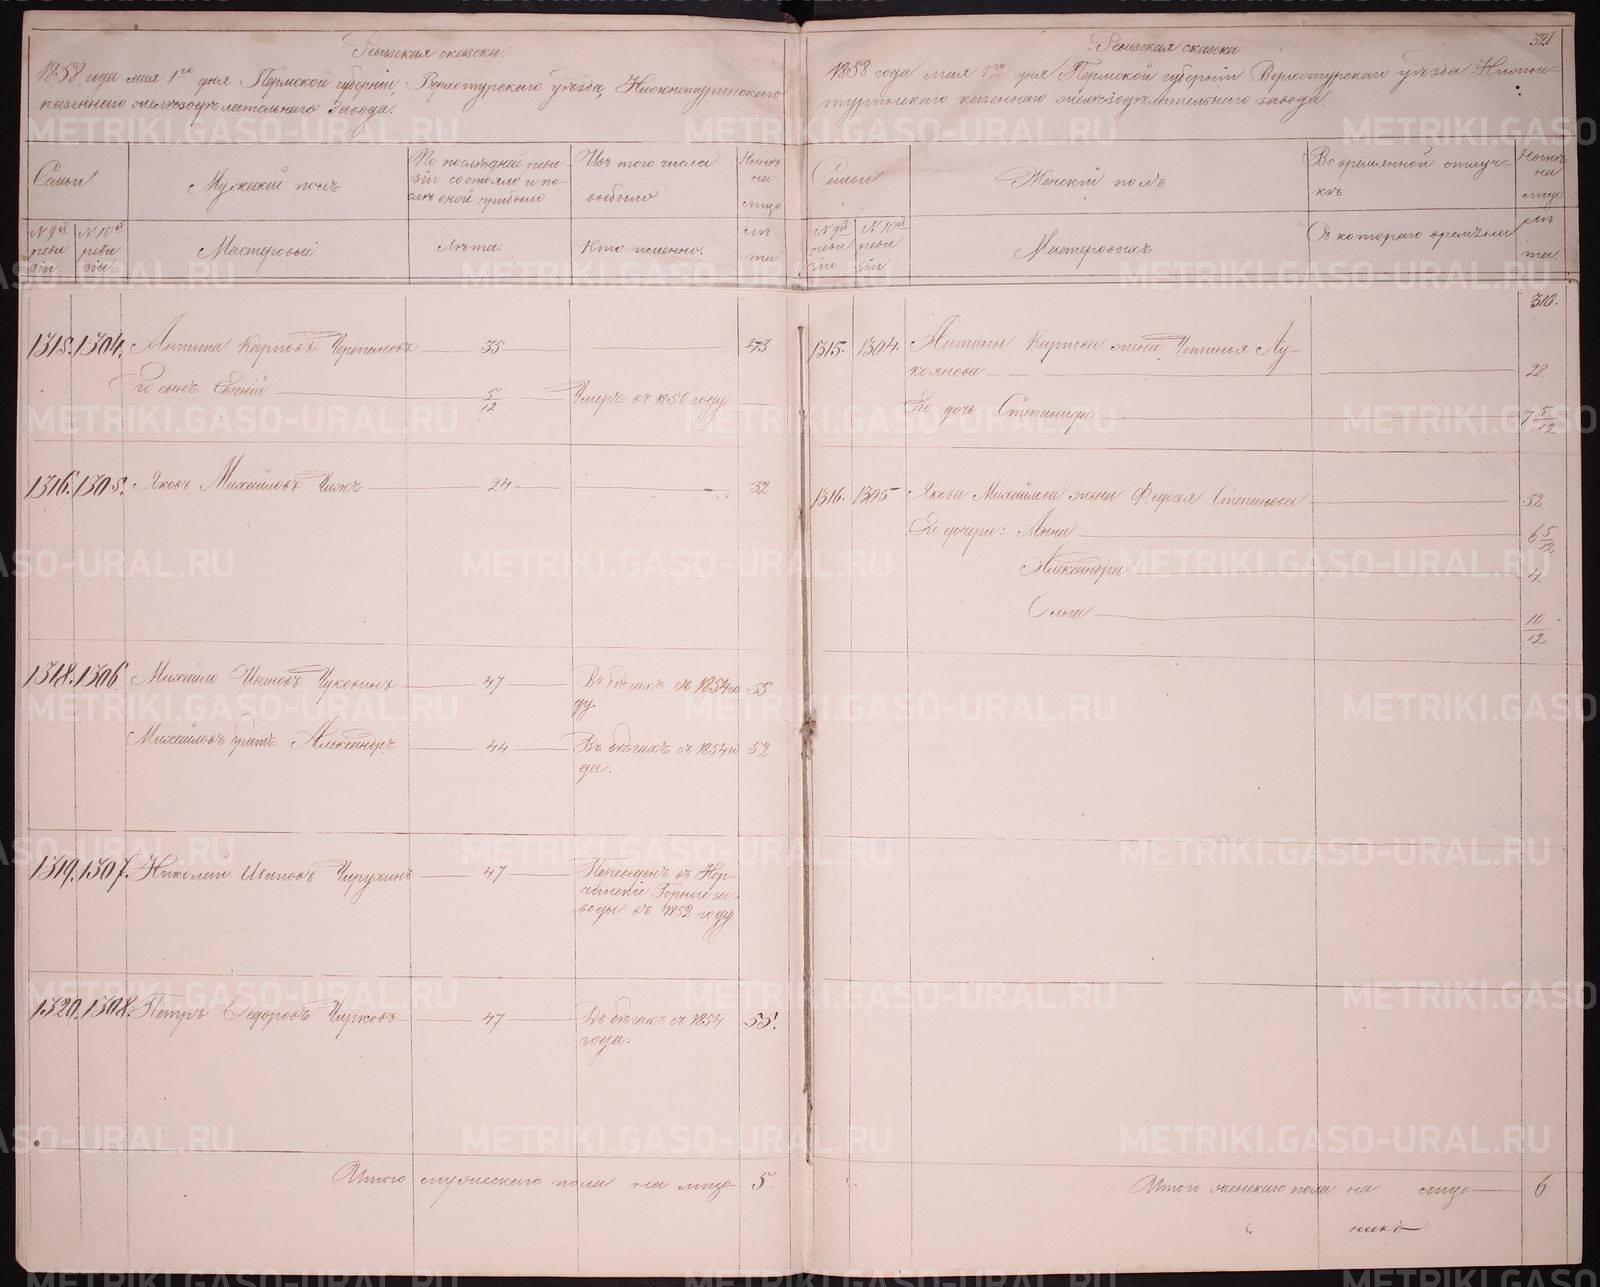 Ревизская сказка
1858 года мая 1го дня Пермской губернiи, Верхотурского уѣзда, Нижнетуринскаго
казеннаго желѣзодѣлательнаго завода.
Семьи
Мужескiй полъ
По последней реви-
зiи состояло и по-
слѣ оной прибыло
Изъ того числа
выбыло
Нынѣ
на
лицо
№ 9й
реви
зiи
№ 10й
реви
зiи
Мастеровые
Лѣта.
Кто именно.
лѣ
та
1315. 1304. Антипа Карповъ Черепановъ 35 43
Его сынъ Евгенiй 5/12 Умеръ въ 1850 году
1316. 1305. Яковъ Михайловъ Чижъ 24 32
1318. 1306 Михайло Ивановъ Чуковинъ 47 Въ бѣгахъ съ 1854 го 55
ду.
Михайловъ братъ Александръ 44 Въ бѣгахъ съ 1854 го 52
да.
1319. 1307. Николай Ивановъ Чирухинъ 47 Переведенъ въ Нер-
чинскiе Горные за-
воды въ 1852 году
1320. 1308. Петръ Федоровъ Чирковъ 47 Въ бѣгахъ съ 1854 55.
года.
Итого мужескаго пола на лицо 5.
321
Ревизская сказка
1858 года мая 1го дня Пермской губернiи Верхотурскаго уѣзда Нижне-
туринскаго казеннаго желѣзодѣлательнаго завода.
Семьи
Женскiй полъ
Во временной отлуч-
кѣ
Нынѣ
на
лицо
№ 9й
реви
зiи
№ 10й
реви
зiи
Мастеровыхъ.
Съ котораго времени
лѣ
та
310.
1315. 1304. Антипы Карпова жена Устинья Лу-
коянова 28.
Его дочь Степанида 7 5/12
1316. 1305 Якова Михайлова жена Федосья Степанова 32
Его дочери: Анна 6 5/12
Александра 4.
Ольга 10/12
Итого женскаго пола на лицо 6
METRIKI.GASO-URAL.RU